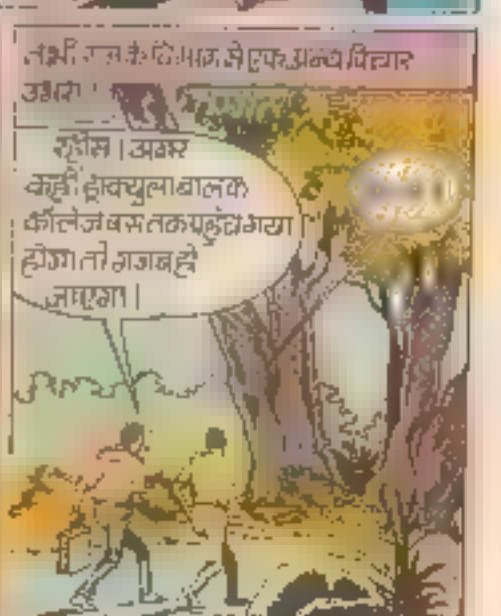 तभी राज के दिमाग में एक अन्य विचार
उभरा।
सुरेस। अगर
कहीं ड्रैक्युला बालक
कॉलेज बस तक पहुंच गया
होगा तो गजब हो
जाएगा।